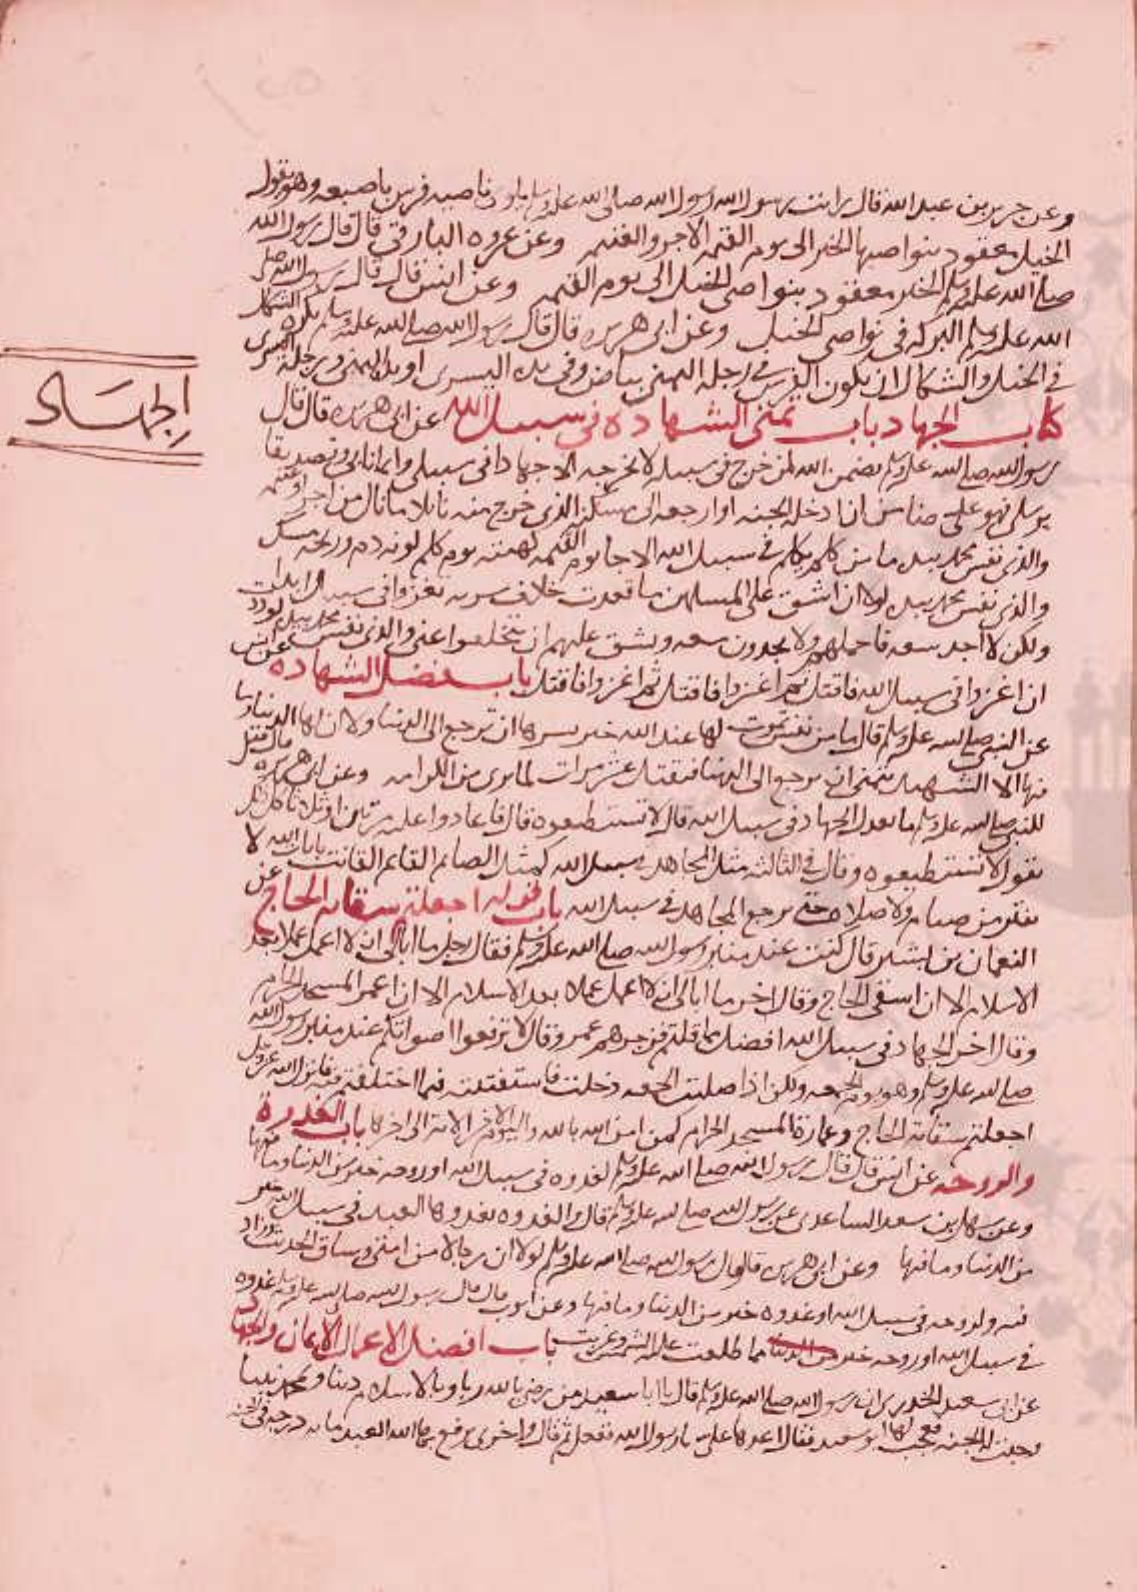 وعن جرير بن عبد الله قال رايت رسول الله صلى الله عليه وسلم يلوي ناصية فرس باصبعه وهو يقول
الخيل معقود بنواصيها الخير الى يوم القيمة الاجر والغنيمة وعن عروة البارقي قال قال رسول الله
صلى الله عليه وسلم الخير معقود بنواصي الخيل الى يوم القيمة وعن انس قال قال رسول الله صلى
الله عليه وسلم البركة في نواصي الخيل وعن ابي هريرة قال كان رسول الله صلى الله عليه وسلم يكره الشكال
في الخيل والشكال ان يكون الفرس في رجله اليمنى بياض وفي يده اليسرى او يده اليمنى ورجله اليسرى
الجهاد
كتاب الجهاد باب تمني الشهادة في سبيل الله عن ابي هريرة قال قال
رسول الله صلى الله عليه وسلم تضمن الله لمن خرج في سبيله لا يخرجه الا جهادا في سبيلي وايمانا بي وتصديقا
برسلي فهو علي ضامن ان ادخله الجنة او ارجعه الى مسكنه الذي خرج منه نايلا ما نال من اجر او غنيمة
والذي نفس محمد بيده ما من كلم يكلم في سبيل الله الا جا يوم القيمة كهيئته يوم كلم لونه دم وريحه مسك
والذي نفس محمد بيده لولا ان اشق على المسلمين ما قعدت خلاف سرية تغزوا في سبيل الله ابدا
ولكن لا اجد سعة فاحملهم ولا يجدون سعة ويشق عليهم ان يتخلفوا عني والذي نفس محمد بيده لوددت
ان اغزوا في سبيل الله فاقتل ثم اغزوا فاقتل ثم اغزوا فاقتل باب فضل الشهادة عن انس
عن النبي صلى الله عليه وسلم قال ما من نفس تموت لها عند الله خير يسرها ان ترجع الى الدنيا ولا ان لها الدنيا وما
فيها الا الشهيد يتمنى ان يرجع الى الدنيا فيقتل عشر مرات لما يرى من الكرامة وعن ابي هريرة قال قيل
للنبي صلى الله عليه وسلم ما يعدل الجهاد في سبيل الله قال لا تستطيعوه قال فاعادوا عليه مرتين او ثلاثا كل ذلك
يقول لا تستطيعوه وقال في الثالثة مثل المجاهد في سبيل الله كمثل الصايم القايم القانت بايات الله لا
يفتر من صيام ولا صلاة حتى يرجع المجاهد في سبيل الله باب قوله اجعلتم سقاية الحاج عن
النعمان بن بشير قال كنت عند منبر رسول الله صلى الله عليه وسلم فقال رجل ما ابالي ان لا اعمل عملا بعد
الاسلام الا ان اسقي الحاج وقال اخر ما ابالي ان لا اعمل عملا بعد الاسلام الا ان اعمر المسجد الحرام
وقال اخر الجهاد في سبيل الله افضل مما قلتم فزجرهم عمر وقال لا ترفعوا اصواتكم عند منبر رسول الله
صلى الله عليه وسلم وهو يوم الجمعة ولكن اذا صليت الجمعة دخلت فاستفتيته فيما اختلفتم فيه فانزل الله عز وجل
اجعلتم سقاية الحاج وعمارة المسجد الحرام كمن امن بالله واليوم الاخر الاية الى اخرها باب الغدوة
والروحة عن انس قال قال رسول الله صلى الله عليه وسلم لغدوة في سبيل الله او روحة خير من الدنيا وما فيها
وعن سهل بن سعد الساعدي عن رسول الله صلى الله عليه وسلم قال والغدوة يغدوها العبد في سبيل الله خير
من الدنيا وما فيها وعن ابي هريرة قال قال رسول الله صلى الله عليه وسلم لولا ان رجالا من امتي وساق الحديث وزاد
فيه ولروحة في سبيل الله او غدوة خير من الدنيا وما فيها وعن ابي ايوب قال قال رسول الله صلى الله عليه وسلم غدوة
في سبيل الله او روحة خير مما طلعت عليه الشمس وغربت باب افضل الاعمال الايمان والجهاد
عن ابي سعيد الخدري ان رسول الله صلى الله عليه وسلم قال يا ابا سعيد من رضي بالله ربا وبالاسلام دينا وبمحمد نبيا
وجبت له الجنة فعجب لها ابو سعيد فقال اعدها علي يا رسول الله ففعل ثم قال واخرى يرفع بها الله العبد مائة درجة في الجنة